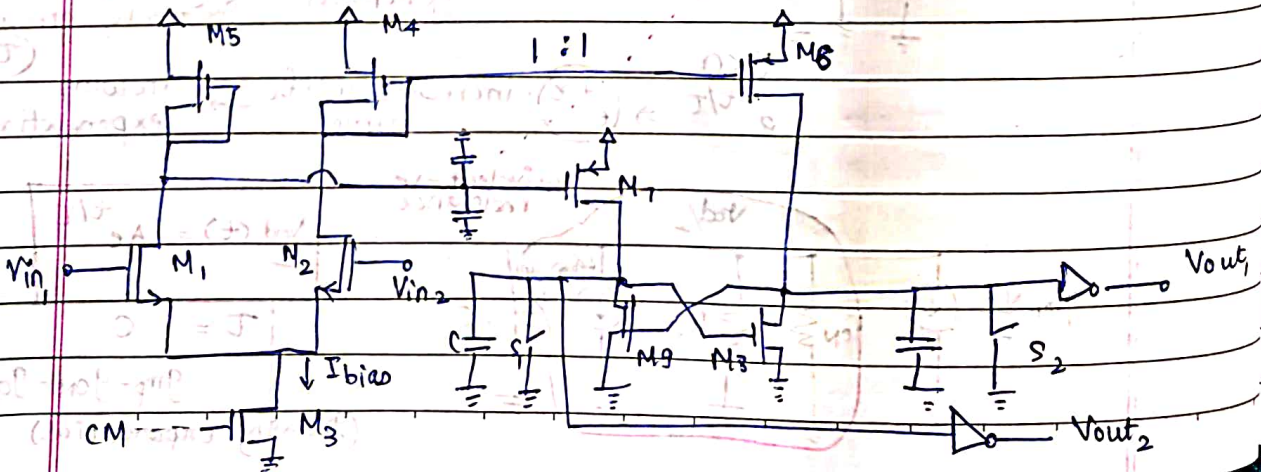 M5
M4
1 : 1
M6
M7
Vin1
M1
M2
Vin2
Vout1
C
S1
M9
M8
S2
Ibias
CM
M3
Vout2